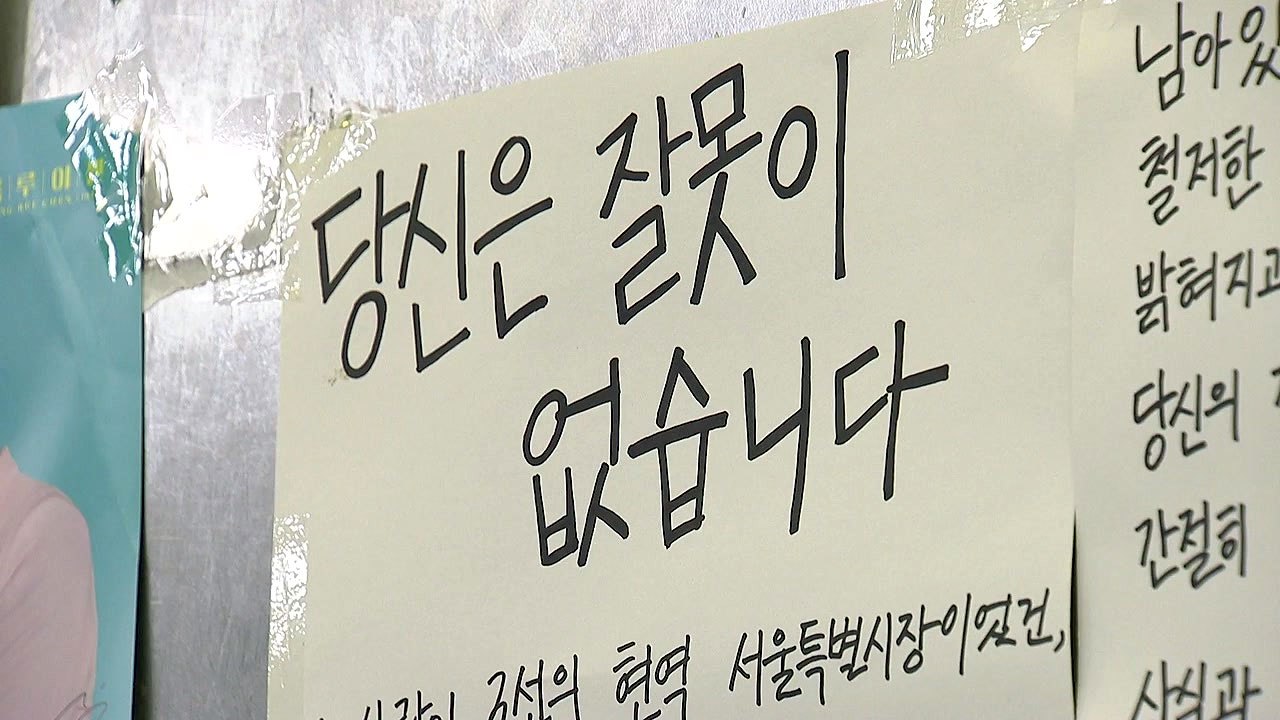 당신은 잘못이
없습니다
현역 서울특별시장이었건,
남아있
철저한
밝혀지고
당신의
간절히
사실과